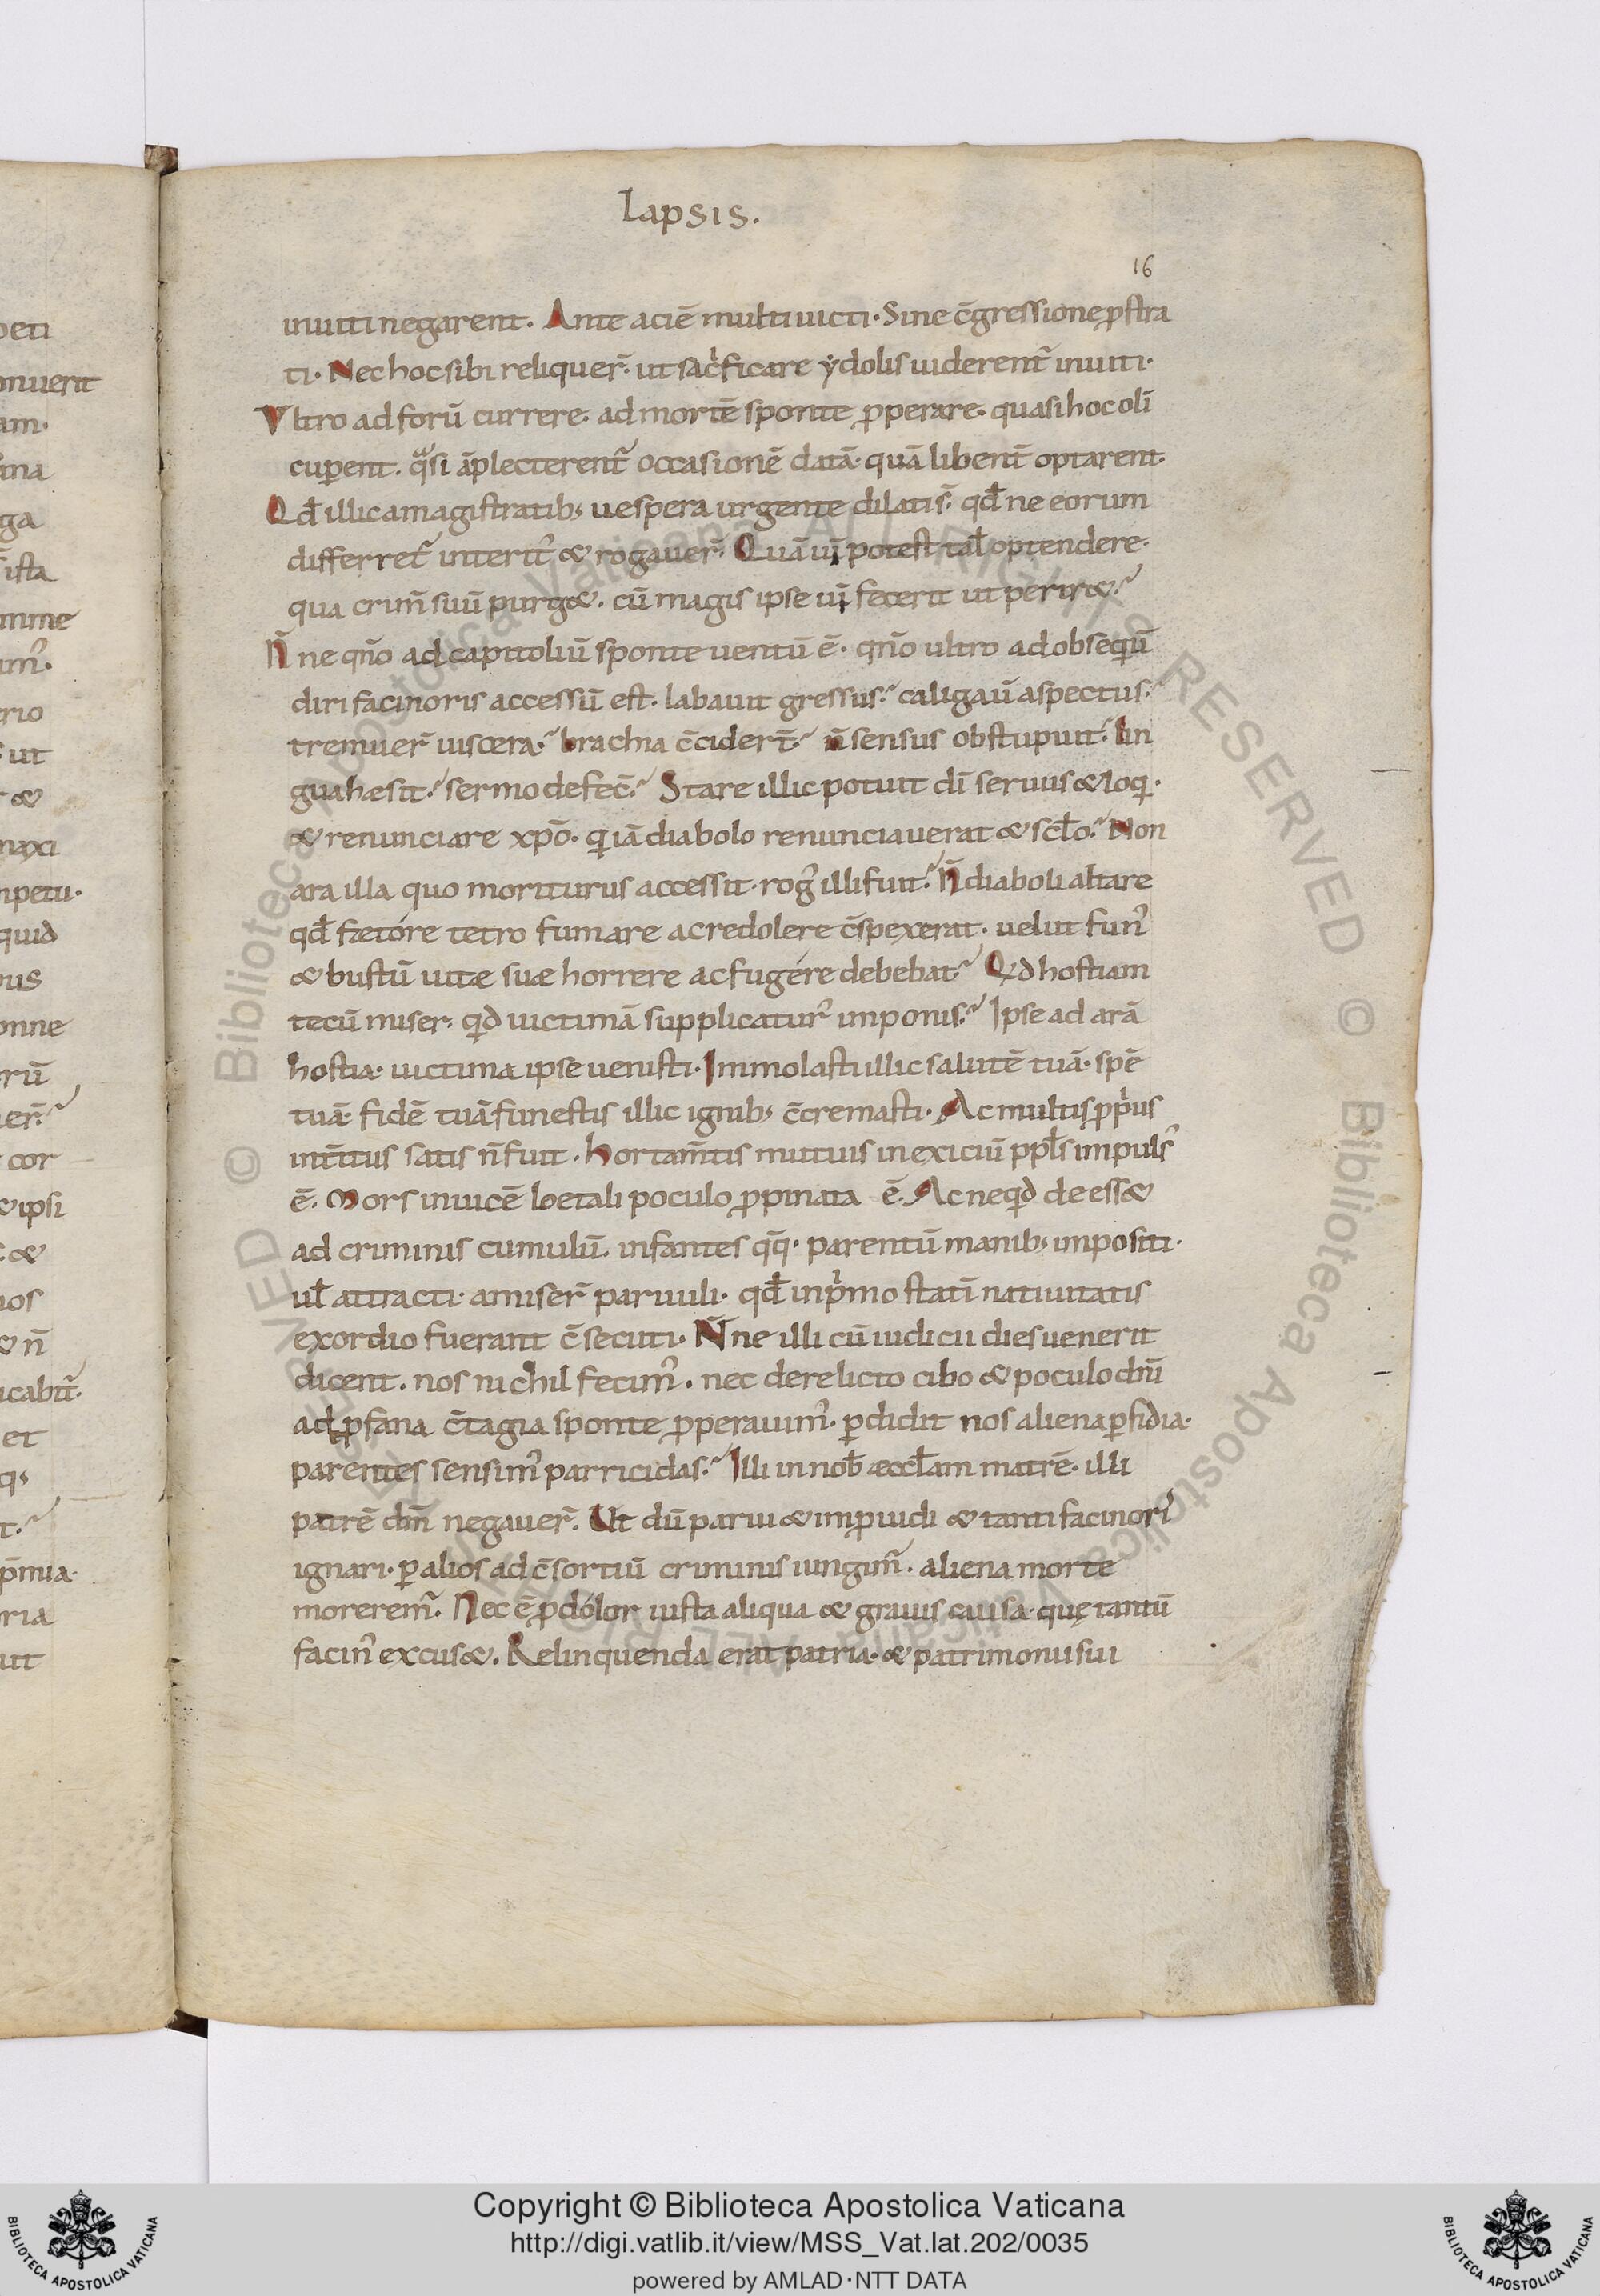 Lapsis.
16
inuiti negarent. Ante aciē multi uicti. Sine c̄gressione ꝓstra
ti. Nec hoc sibi reliquer̄. ut sac̓ficare ydolis uiderent̓ inuiti.
Vltro ad forū currere. ad mortē sponte ꝓperare. quasi hoc oli̅
cuꝑent. qͣsi āplecterent̓ occasionē datā. quā libent̄ optarent.
Qd̄ illic a magistratib; uespera urgente dilatis̓. qd̄ ne eorum
differret̓ interit̓ & rogauer̄. Quā uī potest tal̄ optendere.
qua crim̄ suū purg&. cū magis ipse uī fecerit ut perir&.
N̄ne qn̄o ad capitoliū sponte uentū ē. qn̄o ultro ad obseqiū
diri facinoris accessū est. labauit gressus. caligau̅ aspectus.
tremuer̄ uiscera. brachia c̄cidert̄. n̄ sensus obstupuit. lin
gua hæsit. sermo defec̄. Stare illic potuit dī seruus & loqi.
& renunciare xp̄o. qi iā diabolo renunciauerat & scl̄o. Non
ara illa quo moriturus accessit. rog̓ illi fuit. N̄ diaboli altare
qd̄ fætore tetro fumare ac redolere c̄spexerat. uelut fun̓
& bustū uitæ suæ horrere ac fugere debebat. Qid hostiam
tecū miser. qid uictimā supplicatur̓ imponis. Ipse ad arā
hostia. uictima ipse uenisti. Immolasti illic salutē tuā. spē
tuā. fidē tuā funestis illic ignib; c̄cremasti. Ac multis ꝓpr̓ius
int̄itus satis n̄ fuit. Hortam̄tis mutuis in exiciū ppl̄s impuls̓
ē. Mors inuicē loetali poculo ꝓpinata ē. Ac neqid deess&
ad criminis cumulū. infantes qq̄. parentū manib; impositi.
ul̄ attracti. amiser̄ paruuli. qd̄ in pr̓mo statī natiuitatis
exordio fuerant c̄secuti. N̄ne illi cū iudicii dies uenerit
dicent. nos nichil fecim̓. nec derelicto cibo & poculo dn̄i
ad ꝓfana c̄tagia sponte ꝓperauim̓. ꝑdidit nos aliena ꝑfidia.
parentes sensim̓ parricidas. Illi in nob̄ æccl̄am matrē. illi
patrē dm̄ negauer̄. Ut dū parui & imꝓuidi & tanti facinori̓
ignari. ꝑ alios ad c̄sortiū criminis iungim̓. aliena morte
morerem̓. Nec ē ꝓ dolor iusta aliqua & grauis causa. quę tantū
facin̓ excus&. Relinquenda erat patria. & patrimonii sui
Copyright © Biblioteca Apostolica Vaticana
http://digi.vatlib.it/view/MSS_Vat.lat.202/0035
powered by AMLAD·NTT DATA